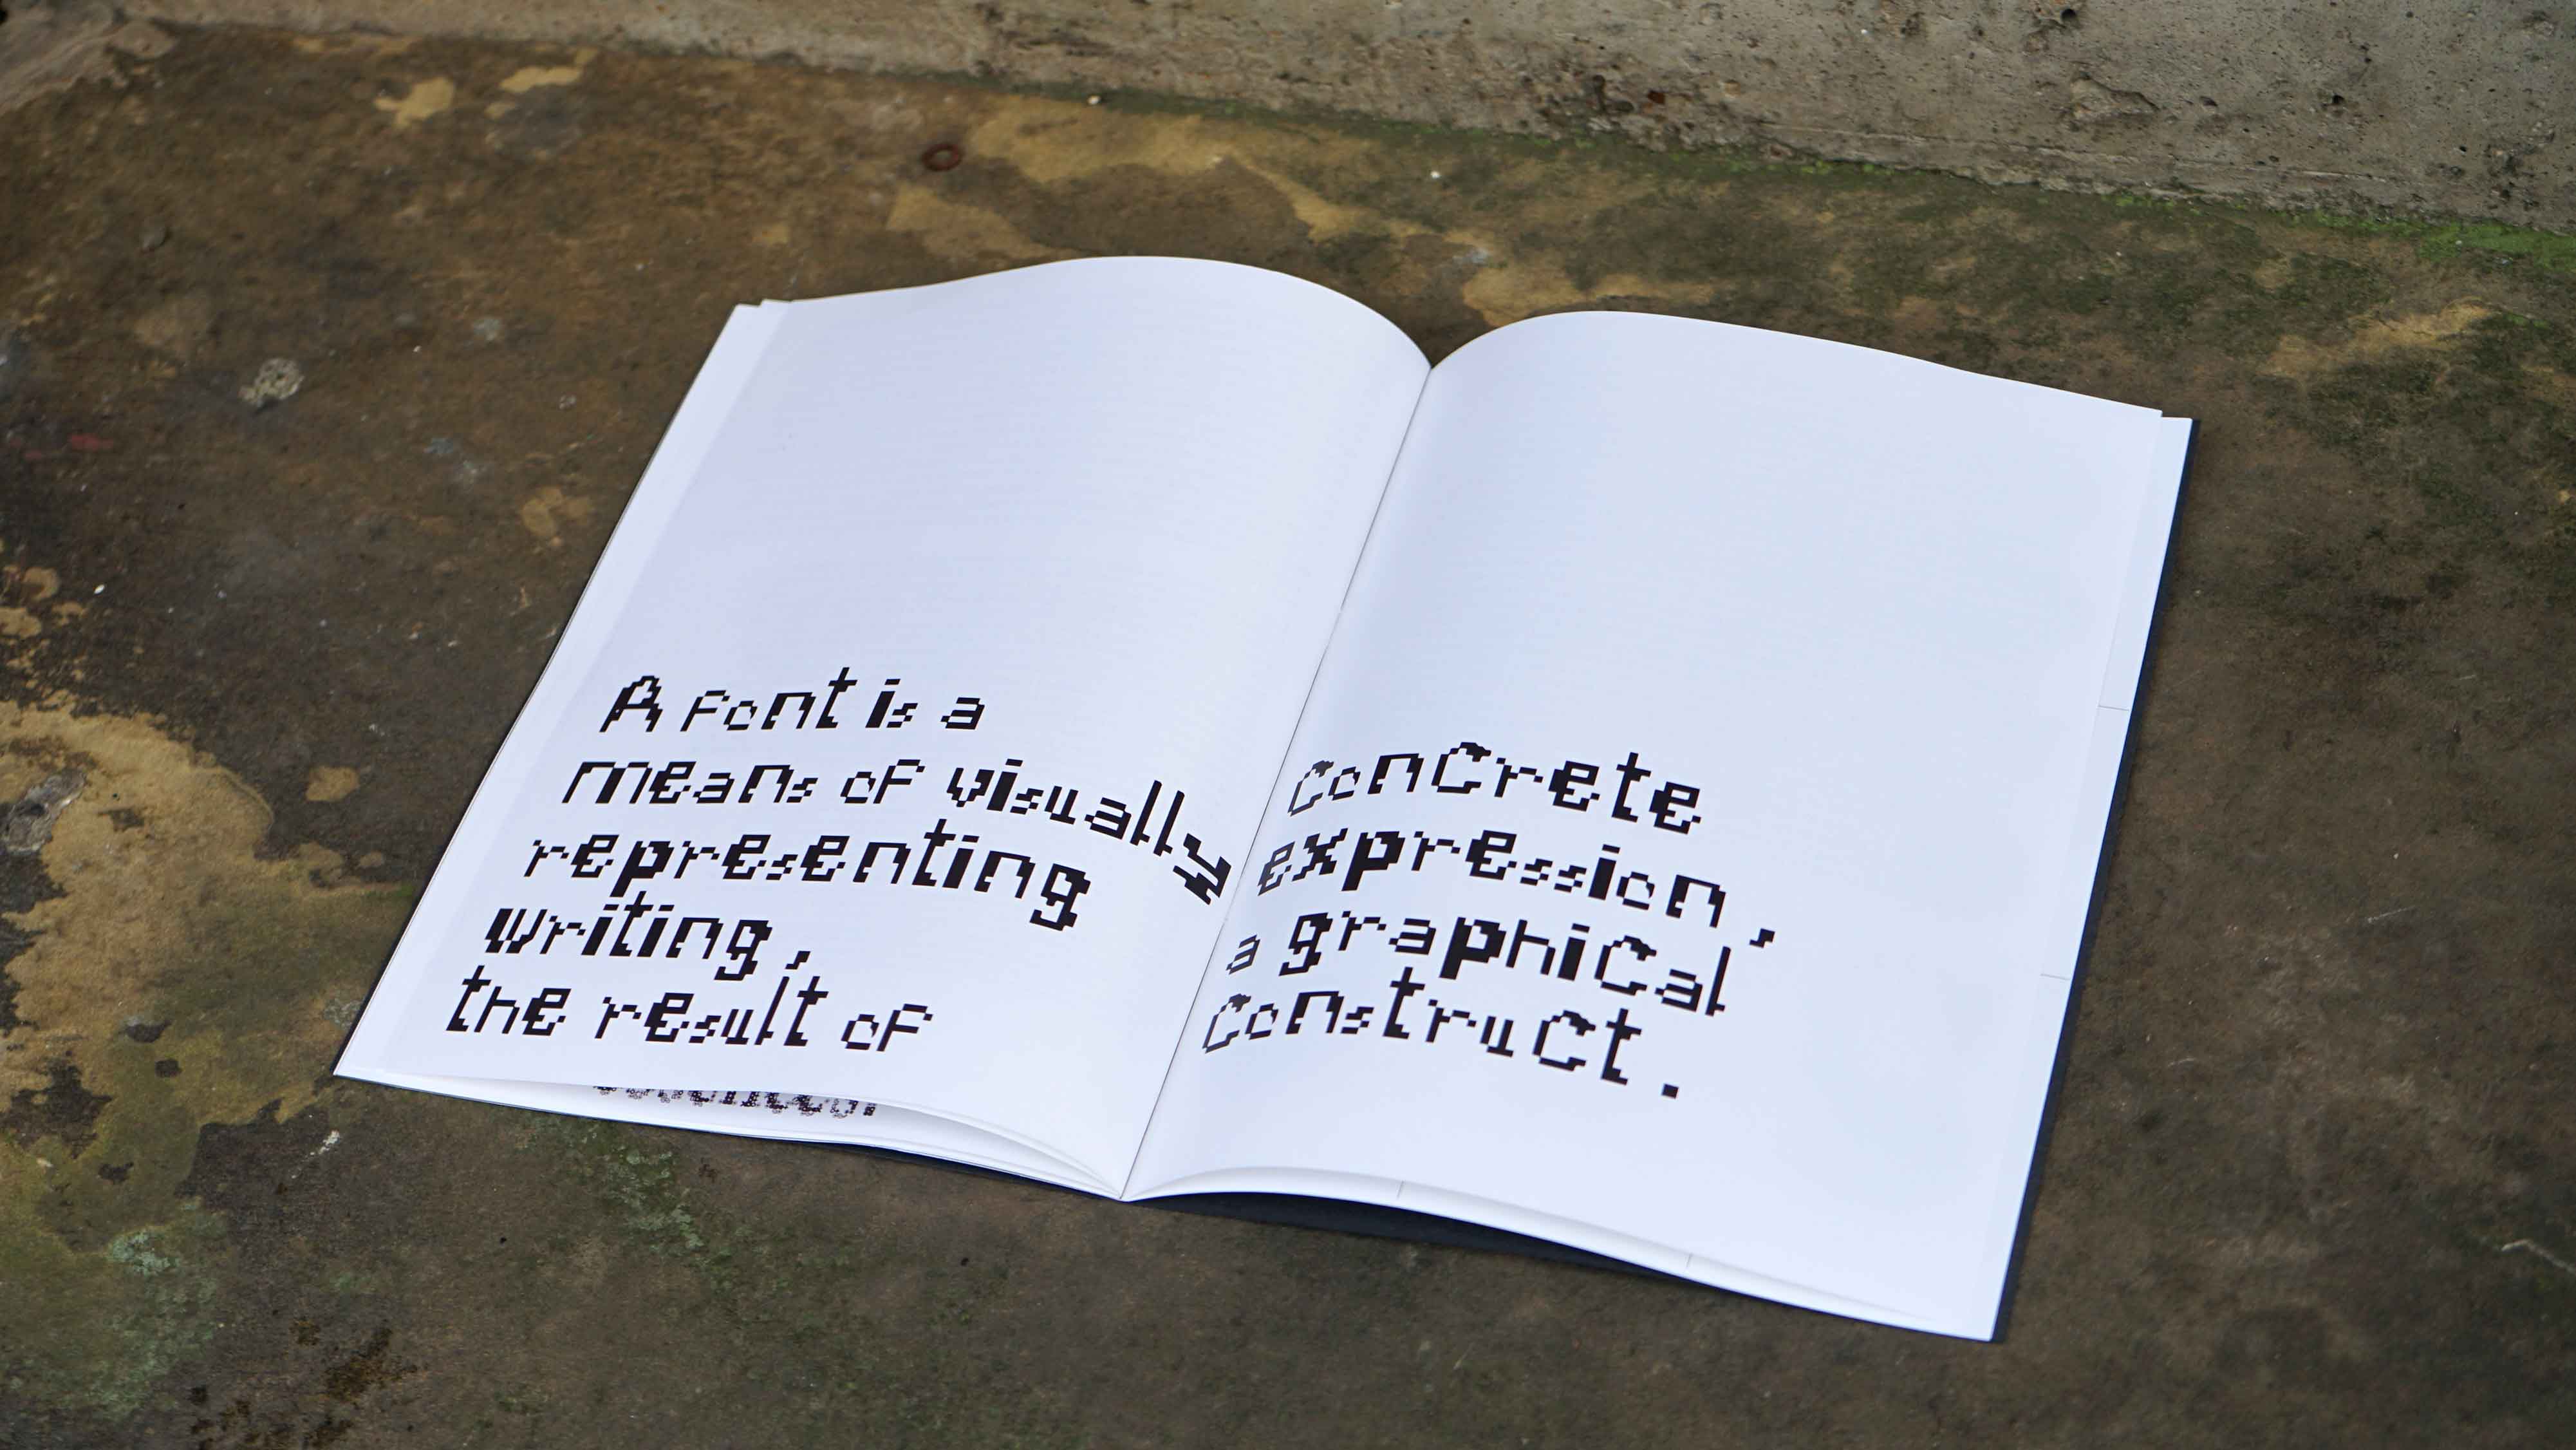 A font is a
means of visually
representing
writing,
the result of
ConCrete
expression,
a graphiCal
ConstruCt.